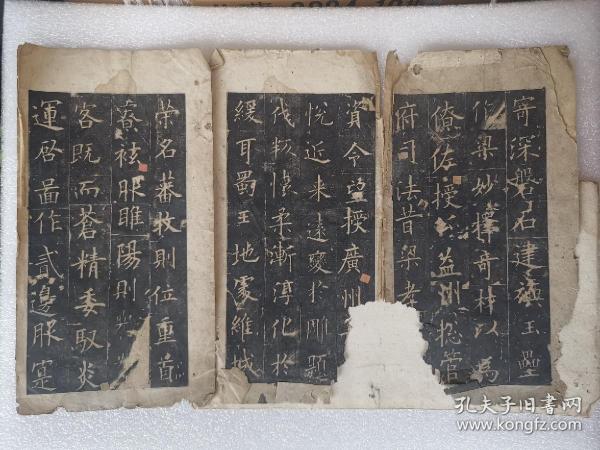 寄深磐石建旟玉壘
作梁妙擇奇材以為
僚佐授公益州總管
府司法昔梁孝
資令望授廣州
悅近来遠變於雕題
伐叛懷柔漸淳化於
緩耳蜀王地處維城
荣名蕃牧則位重首
寮袨服睢陽則
客既而蒼精委馭炎
運啓啚作貳邊服寔
孔夫子旧书网
www.kongfz.com